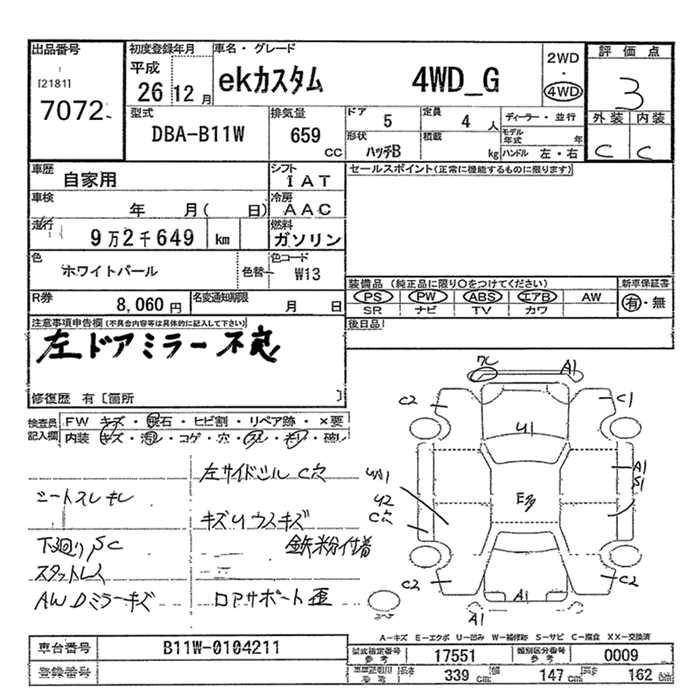 出品番号 初度登録年月 車名・グレード 評価点
[2181]
7072 平成 26 12月 ekカスタム 4WD_G 2WD ・ 4WD 3
外装 内装
C C
型式 DBA-B11W 排気量 659 CC ドア 5 定員 4 人 ディーラー・並行
形状 ハッチB 積載 kg モデル年式 年 ハンドル 左・右
車歴 自家用 シフト IAT セールスポイント(正常に機能するものに限ります)
車検 年 月( 日) 冷房 AAC
走行 9万2千649 km 燃料 ガソリン
色 ホワイトパール 色替 色コード W13
装備品(純正品に限り○をつけてください) 新車保証書
PS PW ABS エアB AW 有・無
SR ナビ TV カワ
R券 8,060円 名変通知期限 月 日
後日品
注意事項申告欄(不具合内容等は具体的に記入して下さい)
左ドアミラー不良
修復歴 有[箇所 ]
検査員記入欄 FW キズ・飛石・ヒビ割・リペア跡・×要
内装 キズ・汚レ・コゲ・穴・スレ・キレ・破レ
左サイドシル C穴
シートスレキレ
キズUウスキズ
下廻りSC 鉄粉付着
スタットレス
AWDミラーキズ ロアサポート歪
A1
C2 C1
U1
A1
S1
U2
C穴
C2 C2
A1
A1
A-キズ E-エクボ U-凹み W-補修跡 S-サビ C-腐食 XX-交換済
車台番号 B11W-0104211 型式指定番号 参考 17551 類別区分番号 参考 0009
登録番号 車両測定寸法 参考 長さ 339 cm 幅 147 cm 高さ 162 cm